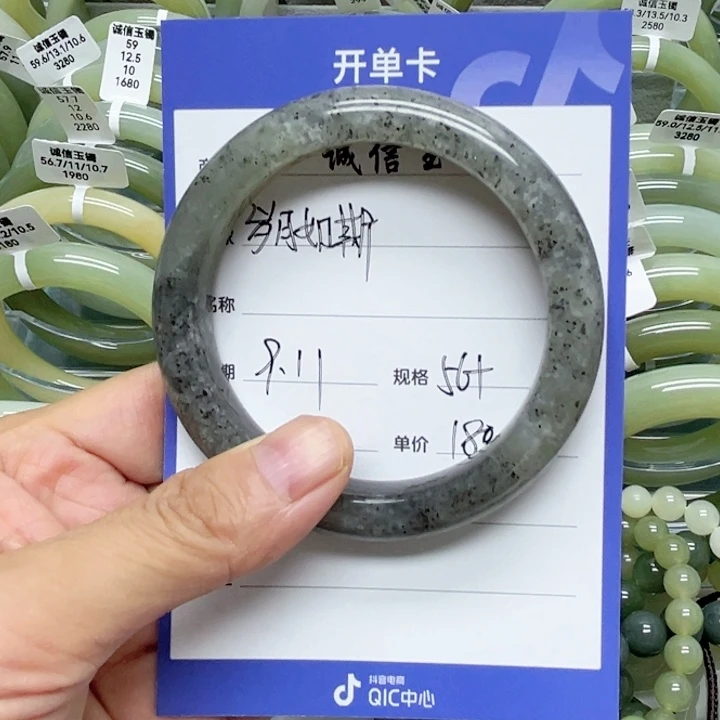 诚信玉镯
59.6/13.1/10.6
3280
诚信玉镯
59
12.5
10
1680
诚信玉镯
57.7
12
10.6
2280
诚信玉镯
56.7/11/10.7
1980
2/10.5
180
诚信玉镯
3/13.5/10.3
2580
诚信玉镯
59.0/12.5/11
3280
开单卡
诚信玉
岁月如期
名称
期 9.11
规格 56+
单价 180
抖音电商
QIC中心